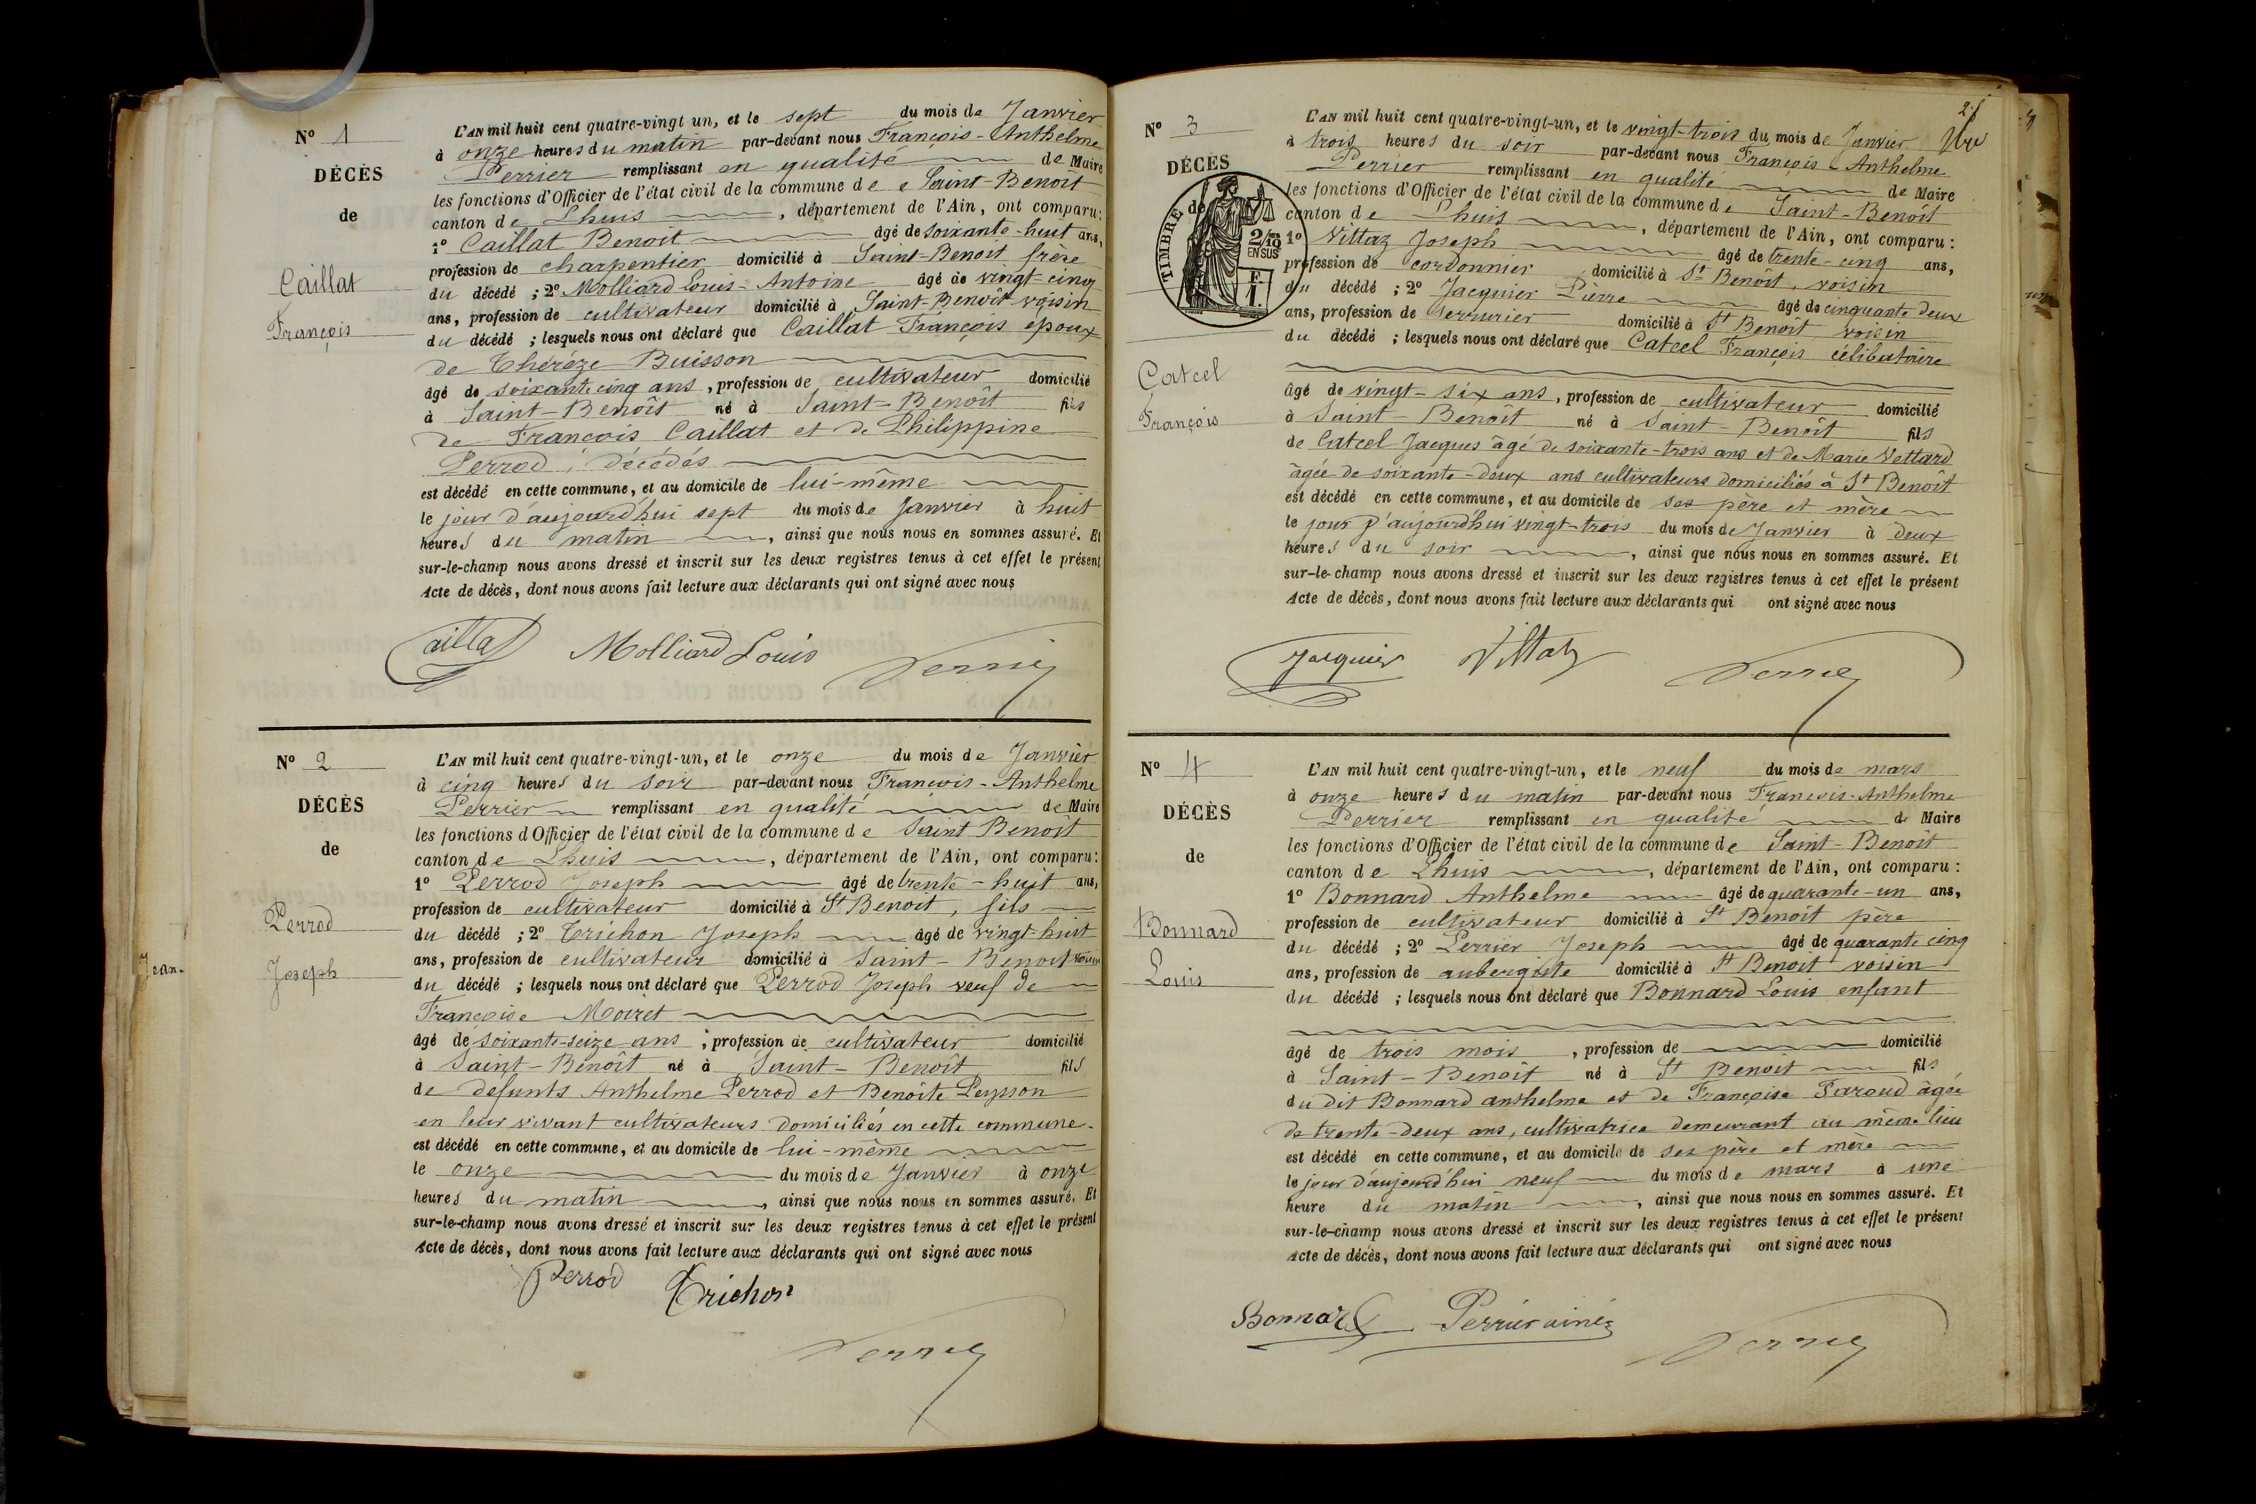 Nº 1
DÉCÈS
de
Caillat
François
L'AN mil huit cent quatre-vingt un, et le sept du mois de Janvier
à onze heures du matin par-devant nous François-Anthelme
Perrier remplissant en qualité de Maire
les fonctions d'Officier de l'état civil de la commune de Saint-Benoît
canton de Lhuis, département de l'Ain, ont comparu:
1º Caillat Benoit âgé de soixante-huit ans,
profession de charpentier domicilié à Saint-Benoit frère
du décédé ; 2º Molliard Louis-Antoine âgé de vingt-cinq
ans, profession de cultivateur domicilié à Saint-Benoît voisin
du décédé ; lesquels nous ont déclaré que Caillat François époux
de Thérèze Buisson
âgé de soixante cinq ans, profession de cultivateur domicilié
à Saint-Benoît né à Saint-Benoît fils
de François Caillat et de Philippine
Perrod, décédés
est décédé en cette commune, et au domicile de lui-même
le jour d'aujourd'hui sept du mois de Janvier à huit
heures du matin, ainsi que nous nous en sommes assuré. Et
sur-le-champ nous avons dressé et inscrit sur les deux registres tenus à cet effet le présent
Acte de décès, dont nous avons fait lecture aux déclarants qui ont signé avec nous
Caillat Molliard Louis Perrier
Nº 2
DÉCÈS
de
Perrod
Joseph
L'AN mil huit cent quatre-vingt-un, et le onze du mois de Janvier
à cinq heures du soir par-devant nous François-Anthelme
Perrier remplissant en qualité de Maire
les fonctions d'Officier de l'état civil de la commune de Saint Benoît
canton de Lhuis, département de l'Ain, ont comparu:
1º Perrod Joseph âgé de trente-huit ans,
profession de cultivateur domicilié à St Benoit, fils
du décédé ; 2º Trichon Joseph âgé de vingt-huit
ans, profession de cultivateur domicilié à Saint-Benoit voisin
du décédé ; lesquels nous ont déclaré que Perrod Joseph veuf de
Françoise Moiret
âgé de soixante-seize ans, profession de cultivateur domicilié
à Saint-Benoît né à Saint-Benoît fils
de défunts Anthelme Perrod et Benoîte Peysson
en leur vivant cultivateurs domiciliés en cette commune.
est décédé en cette commune, et au domicile de lui-même
le onze du mois de Janvier à onze
heures du matin, ainsi que nous nous en sommes assuré. Et
sur-le-champ nous avons dressé et inscrit sur les deux registres tenus à cet effet le présent
Acte de décès, dont nous avons fait lecture aux déclarants qui ont signé avec nous
Perrod Trichon
Perrier
Jean.
Nº 3
DÉCÈS
de
TIMBRE
2/10 EN SUS
F. 1.
Catcel
François
L'AN mil huit cent quatre-vingt-un, et le vingt-trois du mois de Janvier
à trois heures du soir par-devant nous François-Anthelme
Perrier remplissant en qualité de Maire
les fonctions d'Officier de l'état civil de la commune de Saint-Benoît
canton de Lhuis, département de l'Ain, ont comparu:
1º Vittaz Joseph âgé de trente-cinq ans,
profession de cordonnier domicilié à St Benoît, voisin
du décédé ; 2º Jacquier Pierre âgé de cinquante deux
ans, profession de serrurier domicilié à St Benoît voisin
du décédé ; lesquels nous ont déclaré que Catcel François célibataire
âgé de vingt-six ans, profession de cultivateur domicilié
à Saint-Benoît né à Saint-Benoît fils
de Catcel Jacques âgé de soixante-trois ans et de Marie Vettard
âgée de soixante-deux ans cultivateurs domiciliés à St Benoît
est décédé en cette commune, et au domicile de ses père et mère
le jour d'aujourd'hui vingt-trois du mois de Janvier à deux
heures du soir, ainsi que nous nous en sommes assuré. Et
sur-le-champ nous avons dressé et inscrit sur les deux registres tenus à cet effet le présent
Acte de décès, dont nous avons fait lecture aux déclarants qui ont signé avec nous
Jacquier Vittaz Perrier
Nº 4
DÉCÈS
de
Bonnard
Louis
L'AN mil huit cent quatre-vingt-un, et le neuf du mois de mars
à onze heures du matin par-devant nous François-Anthelme
Perrier remplissant en qualité de Maire
les fonctions d'Officier de l'état civil de la commune de Saint-Benoît
canton de Lhuis, département de l'Ain, ont comparu:
1º Bonnard Anthelme âgé de quarante-un ans,
profession de cultivateur domicilié à St Benoît père
du décédé ; 2º Perrier Joseph âgé de quarante cinq
ans, profession de aubergiste domicilié à St Benoit voisin
du décédé ; lesquels nous ont déclaré que Bonnard Louis enfant
âgé de trois mois, profession de domicilié
à Saint-Benoît né à St Benoit fils
du dit Bonnard anthelme et de Françoise Paroud âgée
de trente-deux ans, cultivatrice demeurant au même lieu
est décédé en cette commune, et au domicile de ses père et mère
le jour d'aujourd'hui neuf du mois de mars à une
heure du matin, ainsi que nous nous en sommes assuré. Et
sur-le-champ nous avons dressé et inscrit sur les deux registres tenus à cet effet le présent
Acte de décès, dont nous avons fait lecture aux déclarants qui ont signé avec nous
Bonnard Perrier ainé
Perrier